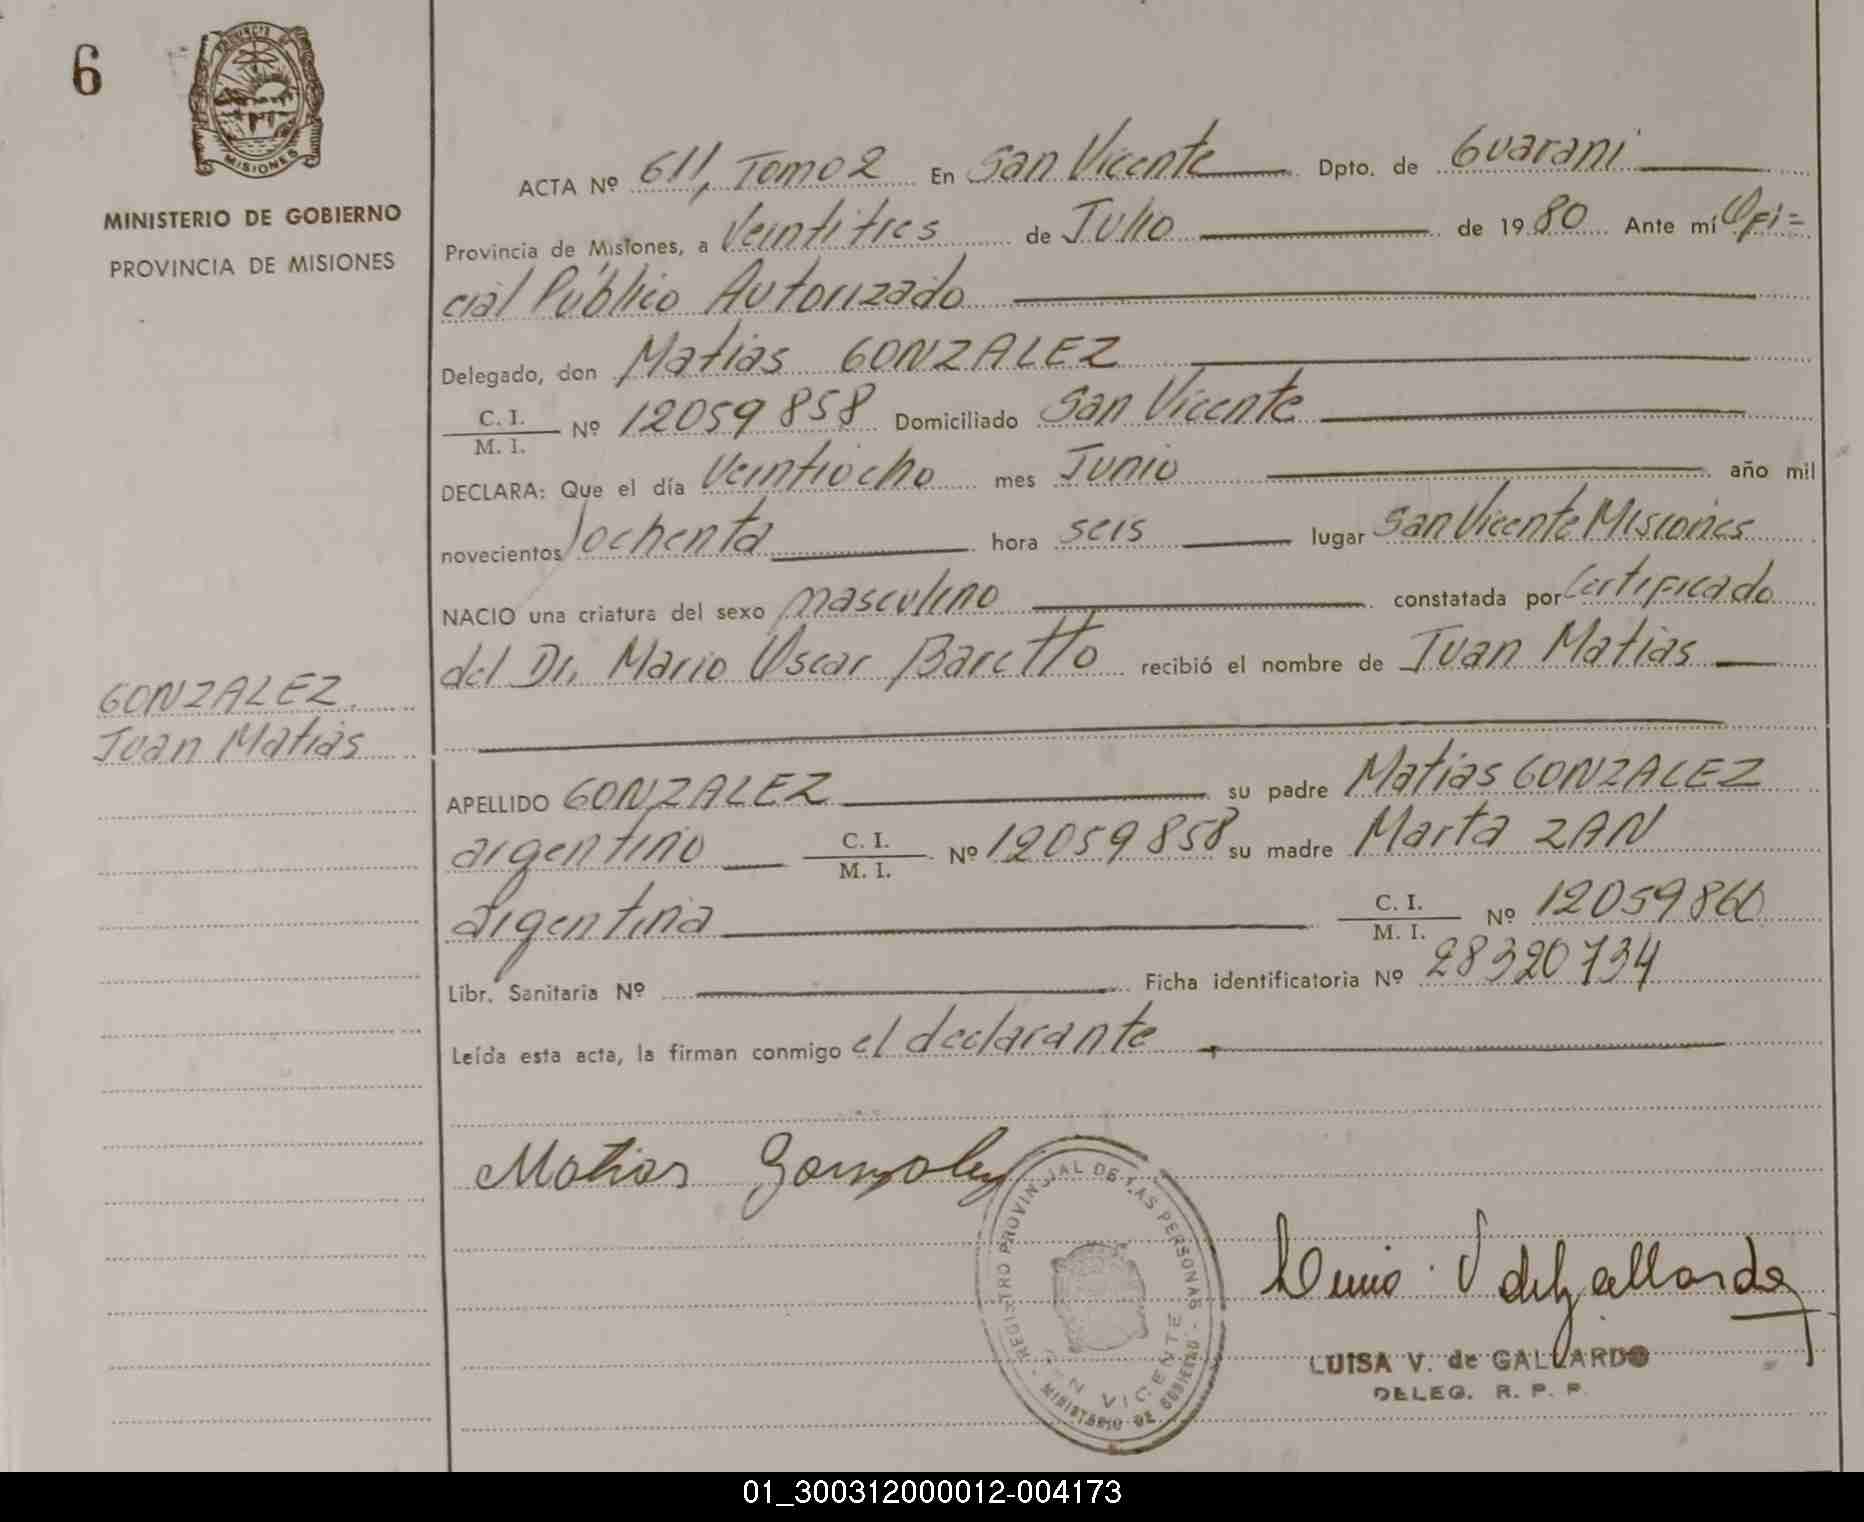 6
PROVINCIA DE
MISIONES
MINISTERIO DE GOBIERNO
PROVINCIA DE MISIONES
ACTA Nº 611, Tomo 2 En San Vicente Dpto. de Guarani
Provincia de Misiones, a Veintitres de Julio de 1980 Ante mí Ofi=
cial Público Autorizado
Delegado, don Matias GONZALEZ
C. I.
M. I. Nº 12059858 Domiciliado San Vicente
DECLARA: Que el día Veintiocho mes Junio año mil
novecientos ochenta hora seis lugar San Vicente Misiones
NACIO una criatura del sexo masculino constatada por Certificado
del Dr. Mario Oscar Baretto recibió el nombre de Juan Matias
GONZALEZ
Juan Matias
APELLIDO GONZALEZ su padre Matias GONZALEZ
argentino C. I. M. I. Nº 12059858 su madre Marta ZAN
argentina C. I. M. I. Nº 12059860
Libr. Sanitaria Nº Ficha identificatoria Nº 28320734
Leída esta acta, la firman conmigo el declarante
Matias Gonzalez
REGISTRO PROVINCIAL DE LAS PERSONAS
SAN VICENTE
MINISTERIO DE GOBIERNO
Luisa V de Gallardo
LUISA V. de GALLARDO
DELEG. R. P. P.
01_300312000012-004173